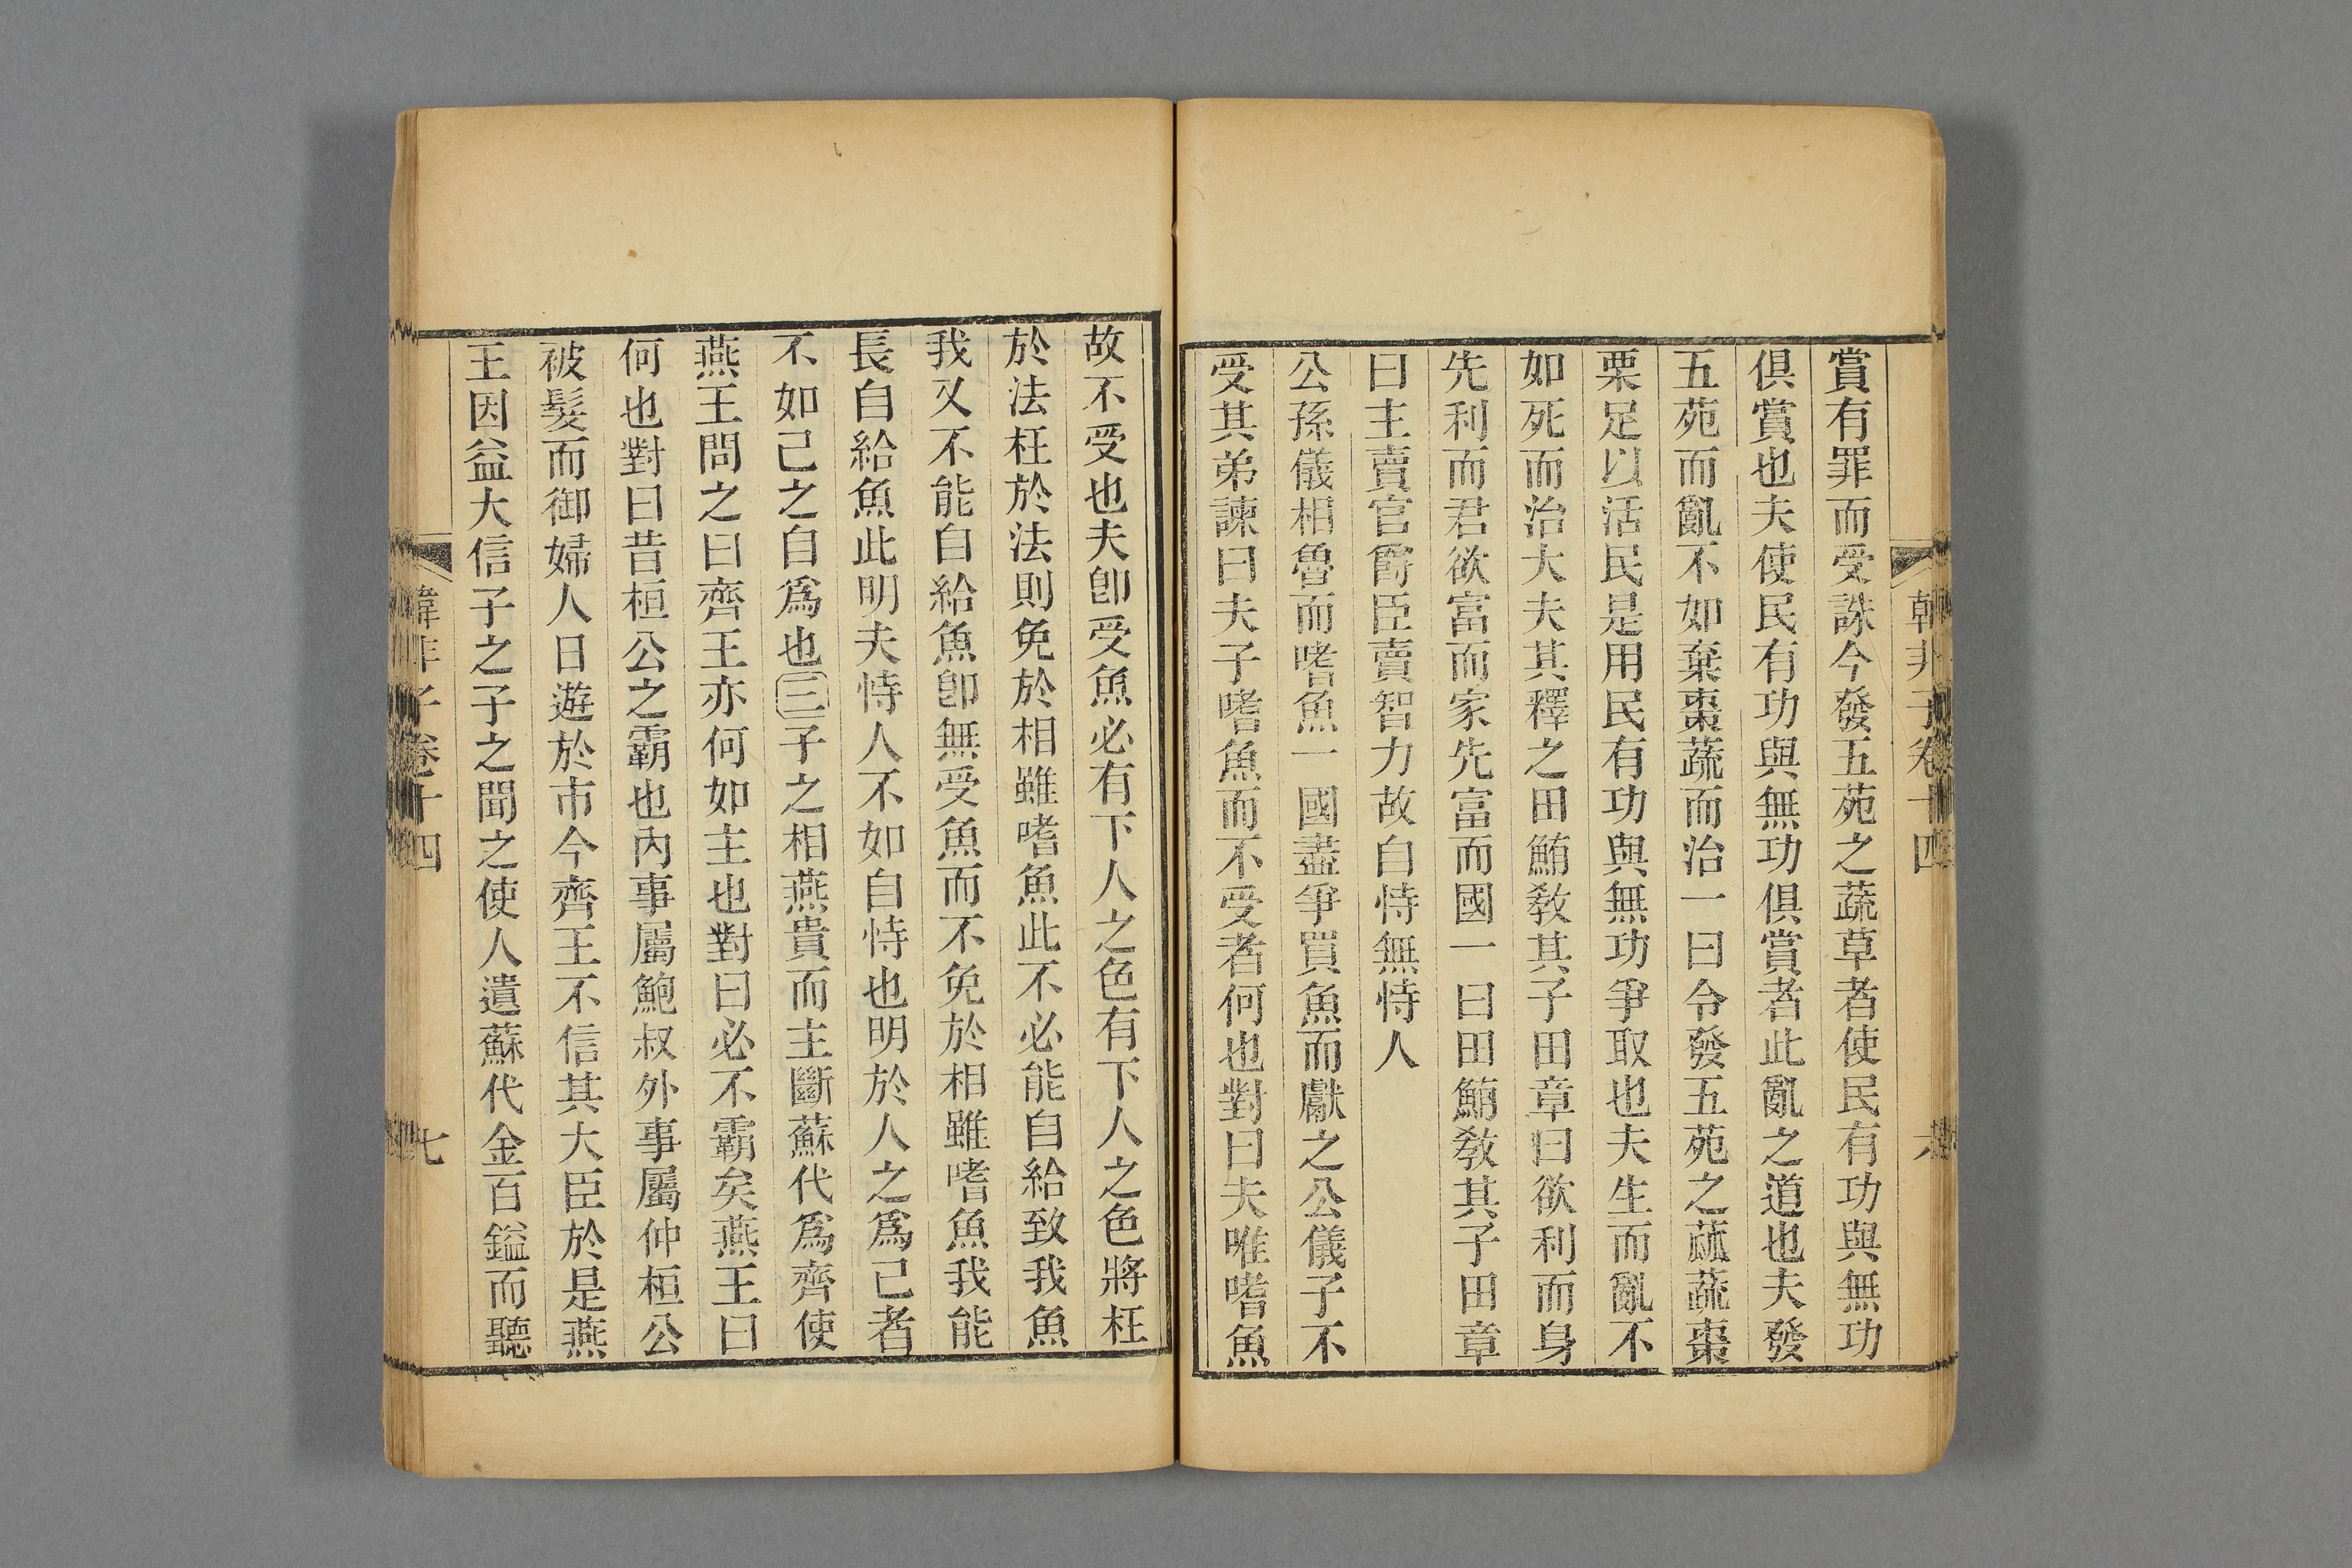 韓非子卷十四
六
賞有罪而受誅今發五苑之蔬草者使民有功與無功
俱賞也夫使民有功與無功俱賞者此亂之道也夫發
五苑而亂不如棄棗蔬而治一曰令發五苑之蓏蔬棗
栗足以活民是用民有功與無功爭取也夫生而亂不
如死而治大夫其釋之田鮪敎其子田章曰欲利而身
先利而君欲富而家先富而國一曰田鮪敎其子田章
曰主賣官爵臣賣智力故自恃無恃人
公孫儀相魯而嗜魚一國盡爭買魚而獻之公儀子不
受其弟諫曰夫子嗜魚而不受者何也對曰夫唯嗜魚
故不受也夫卽受魚必有下人之色有下人之色將枉
於法枉於法則免於相雖嗜魚此不必能自給致我魚
我又不能自給魚卽無受魚而不免於相雖嗜魚我能
長自給魚此明夫恃人不如自恃也明於人之爲己者
不如己之自爲也三子之相燕貴而主斷蘇代爲齊使
燕王問之曰齊王亦何如主也對曰必不霸矣燕王曰
何也對曰昔桓公之霸也內事屬鮑叔外事屬仲桓公
被髮而御婦人日遊於市今齊王不信其大臣於是燕
王因益大信子之子之聞之使人遺蘇代金百鎰而聽
韓非子卷十四
七